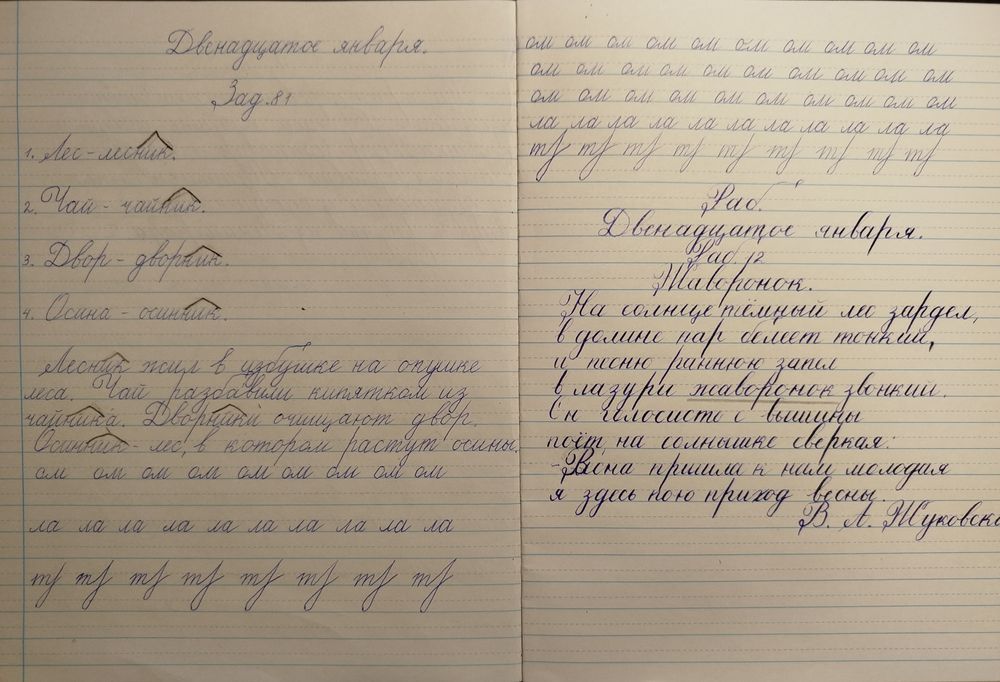 Двенадцатое января.
Зад. 81
1. Лес - лесник.
2. Чай - чайник.
3. Двор - дворник.
4. Осина - осинник.
Лесник жил в избушке на опушке
леса. Чай разбавили кипятком из
чайника. Дворники очищают двор.
Осинник - лес, в котором растут осины.
ом ом ом ом ом ом ом ом ом
ла ла ла ла ла ла ла ла ла ла
тf тf тf тf тf тf тf тf
ом ом ом ом ом ом ом ом ом ом
ом ом ом ом ом ом ом ом ом ом
ом ом ом ом ом ом ом ом ом ом
ла ла ла ла ла ла ла ла ла ла ла
тf тf тf тf тf тf тf тf тf
Раб.
Двенадцатое января.
Раб 12
Жаворонок.
На солнце тёмный лес зардел,
в долине пар белеет тонкий,
и песню раннюю запел
в лазури жаворонок звонкий.
Он голосисто с вышины
поёт, на солнышке сверкая:
- Весна пришла к нам молодая
я здесь пою приход весны.
В. А. Жуковск